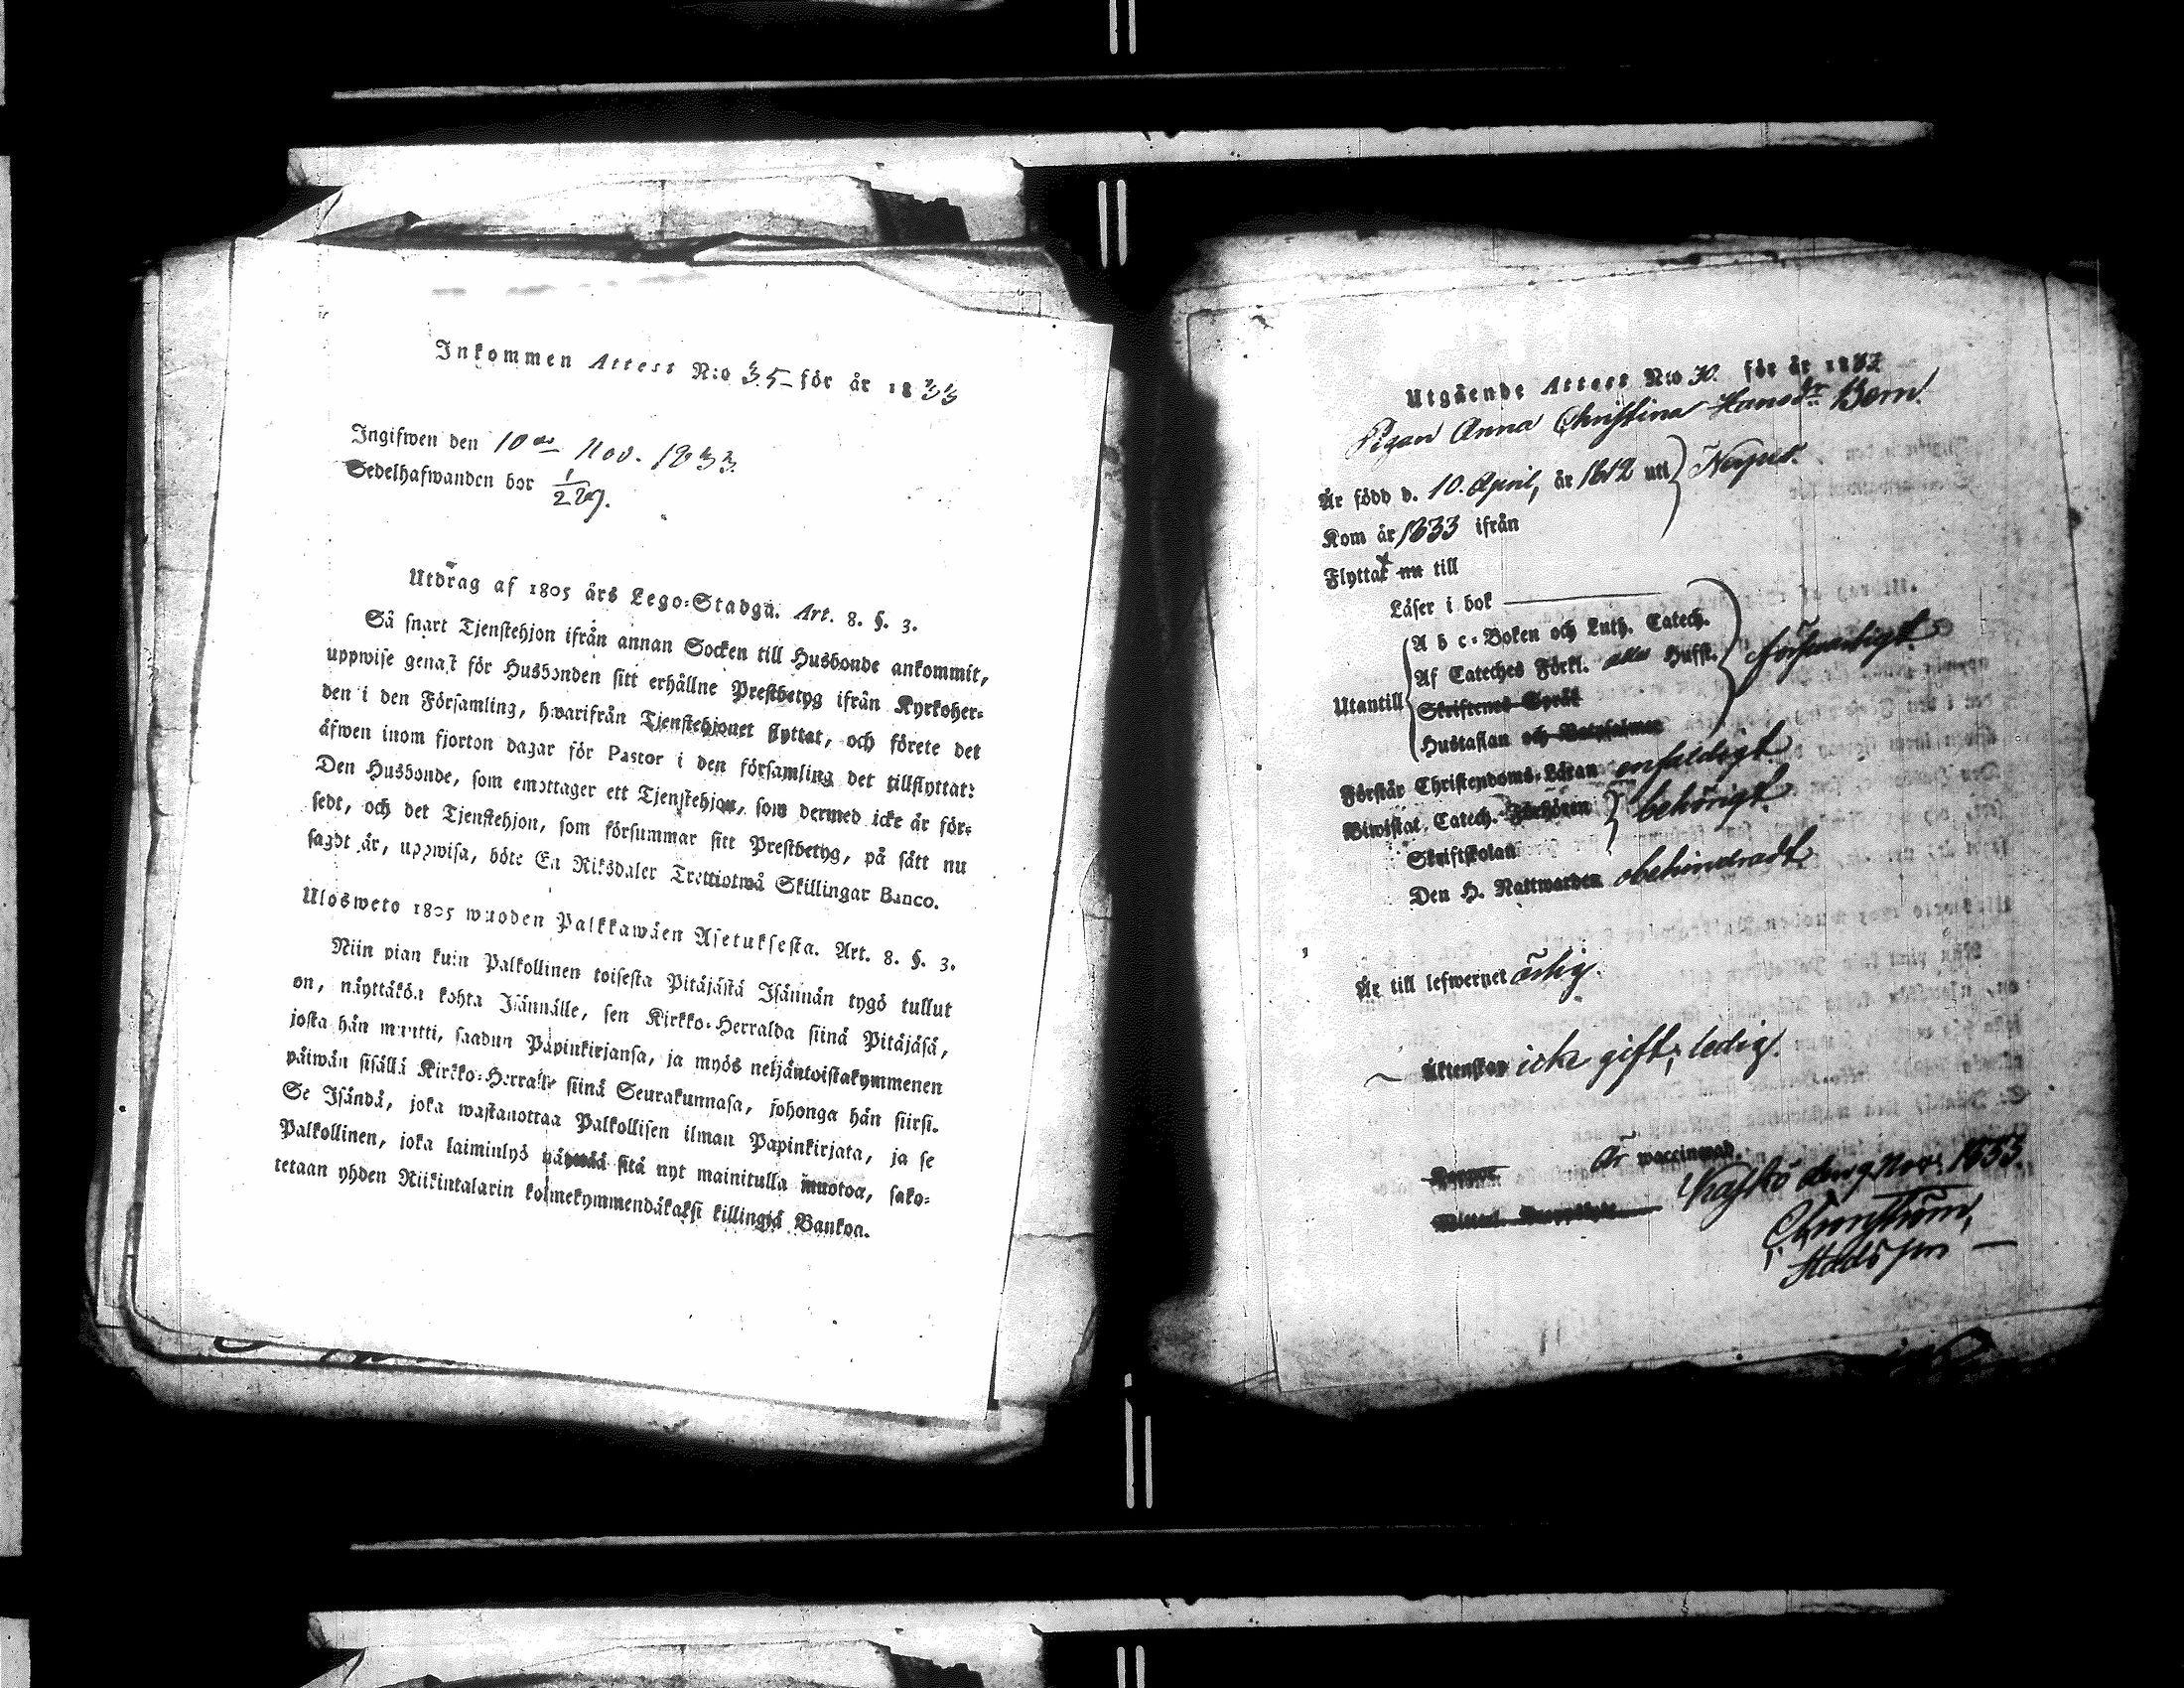 Inkommen Attest N:o 35 för år 1833
Ingifwen den 10de Nov. 1833.
Sedelhafwanden bor
Utdrag af 1805 års Lego-Stadga. Art. 8. §. 3.
Så snart Tjenstehjon ifrån annan Socken till Husbonde ankommit,
uppwise genast för Husbonden sitt erhållne Prestbetyg ifrån Kyrkoher-
den i den Församling, hwarifrån Tjenstehjonet flyttat, och förete det
äfwen inom fjorton dagar för Pastor i den församling det tillflyttat:
Den Husbonde, som emottager ett Tjenstehjon, som dermed icke är för-
sedt, och det Tjenstehjon, som försummar sitt Prestbetyg, på sätt nu
sagdt är, uppwisa, böte En Riksdaler Trettiotwå Skillingar Banco.
Ulosweto 1805 wuoden Palkkawäen Asetuksesta. Art. 8. §. 3.
Niin pian kuin Palkollinen toisesta Pitäjästä Isännän tygö tullut
on, näyttäkön kohta Isännälle, sen Kirkko-Herralda siinä Pitäjäsä,
josta hän muutti, saadun Papinkirjansa, ja myös neljäntoistakymmenen
päiwän sisällä Kirkko-Herralle siinä Seurakunnasa, johonga hän siirsi.
Se Isändä, joka wastanottaa Palkollisen ilman Papinkirjata, ja se
Palkollinen, joka laiminlyö näyttää sitä nyt mainitulla muotoa, sako-
tetaan yhden Riikintalarin kolmekymmendäkaksi killingiä Bankoa.
Utgående Attest N:o 30. för år 1832
Pigan Anna Christina Hansdr Bom.
Är född d. 10. April, år 1812 uti } Nerpes.
Kom år 1833 ifrån
Flyttar nu till
Läser i bok
A b c-Boken och Luth. Catech.
Af Cateches Förkl. alla Hufst. } försvarligt.
Utantill
Skriftenes Språk
Hustaflan och Botpsalmer
Förstår Christendoms-Läran enfaldigt
Biwistat Catech. Förhören } behörigt.
Skriftskolan
Den H. Nattwarden obehindradt
Är till lefwernet ärlig.
Äktenskap icke gift, ledig.
Är waccinerad.
Kaskö den 9 Nov. 1833.